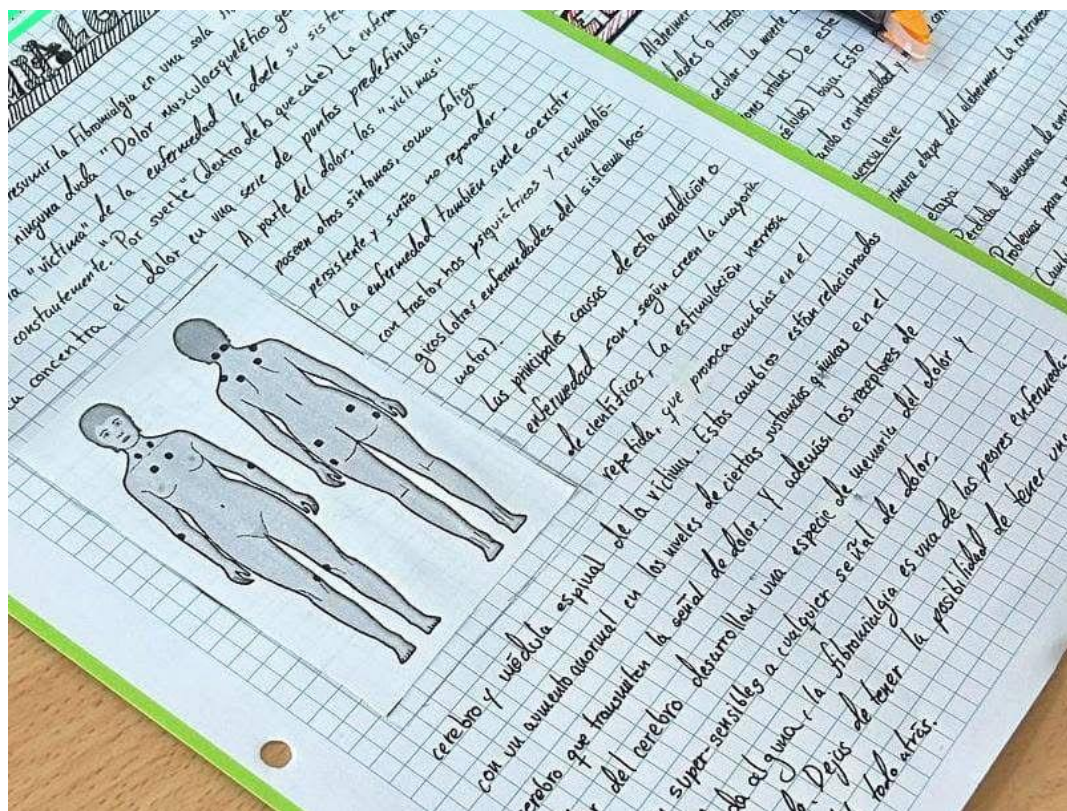 MIALG
resumir la Fibromialgia en una sola
ninguna duda "Dolor musculoesquelético ge
"víctima" de la enfermedad le duele su siste
constantemente. "Por suerte" (dentro de lo que cabe) la enfer
concentra el dolor en una serie de puntos predefinidos.
A parte del dolor, las "victimas"
poseen otros síntomas, como fatiga
persistente y sueño no reparador.
La enfermedad también suele coexistir
con trastornos psiquiátricos y reumatoló-
gicos (otras enfermedades del sistema loco-
motor).
Las principales causas de esta maldición o
enfermedad son, según creen la mayoría
de científicos, la estimulación nerviosa
repetida, que provoca cambios en el
cerebro y médula espinal de la víctima. Estos cambios están relacionados
con un aumento anormal en los niveles de ciertas sustancias químicas en el
cerebro que transmiten la señal de dolor. Y además, los receptores de
del cerebro desarrollan una especie de memoria del dolor y
super-sensibles a cualquier señal de dolor.
da alguna, la fibromialgia es una de las peores enfermeda-
Dejas de tener la posibilidad de tener una
todo atrás.
Alzheimer
dades (o trastor
celular la muerte
iones vitales. De es
células) baja. Esto
ando en intensidad y
primera etapa del alzheimer. La enferme
etapa
Perdida de memoria de
Problemas para